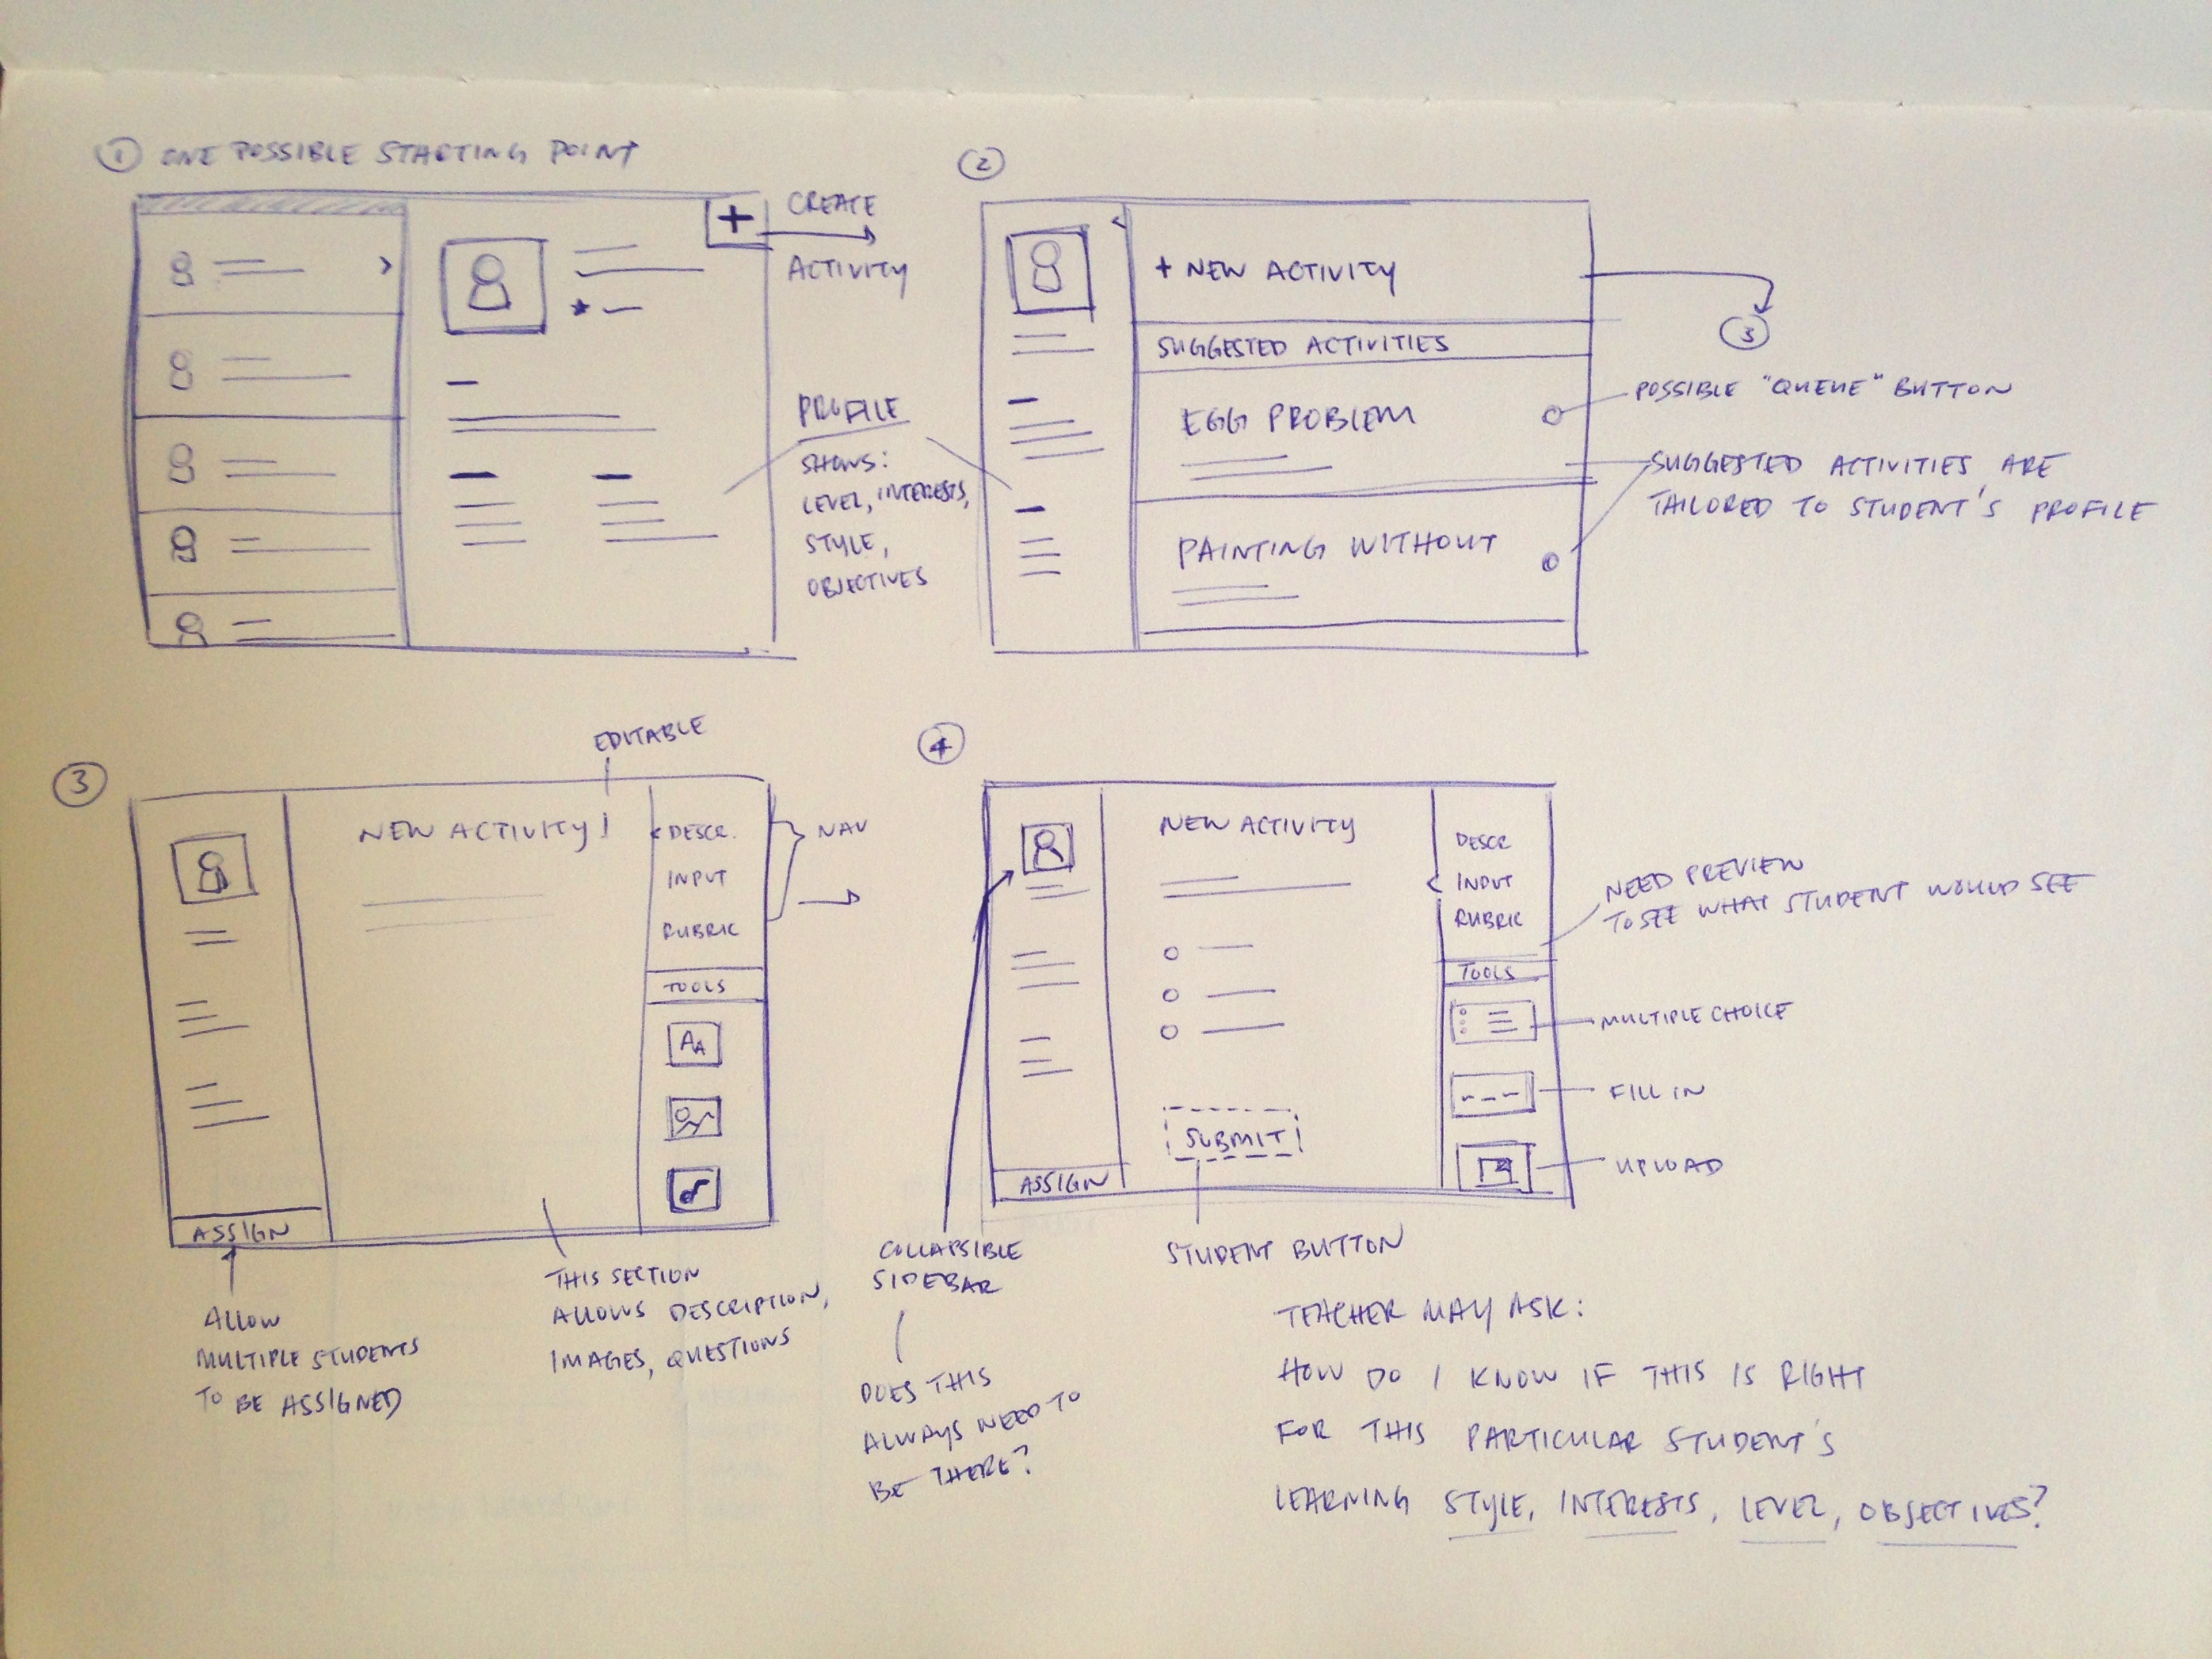 1 ONE POSSIBLE STARTING POINT
+
CREATE
ACTIVITY
PROFILE
SHOWS:
LEVEL, INTERESTS,
STYLE,
OBJECTIVES
2
+ NEW ACTIVITY
3
SUGGESTED ACTIVITIES
EGG PROBLEM
PAINTING WITHOUT
POSSIBLE "QUEUE" BUTTON
SUGGESTED ACTIVITIES ARE
TAILORED TO STUDENT'S PROFILE
3
EDITABLE
NEW ACTIVITY
DESCR.
INPUT
RUBRIC
NAV
TOOLS
AA
ASSIGN
ALLOW
MULTIPLE STUDENTS
TO BE ASSIGNED
THIS SECTION
ALLOWS DESCRIPTION,
IMAGES, QUESTIONS
4
NEW ACTIVITY
DESCR
INPUT
RUBRIC
TOOLS
NEED PREVIEW
TO SEE WHAT STUDENT WOULD SEE
MULTIPLE CHOICE
FILL IN
UPLOAD
SUBMIT
ASSIGN
COLLAPSIBLE
SIDEBAR
DOES THIS
ALWAYS NEED TO
BE THERE?
STUDENT BUTTON
TEACHER MAY ASK:
HOW DO I KNOW IF THIS IS RIGHT
FOR THIS PARTICULAR STUDENT'S
LEARNING STYLE, INTERESTS, LEVEL, OBJECTIVES?